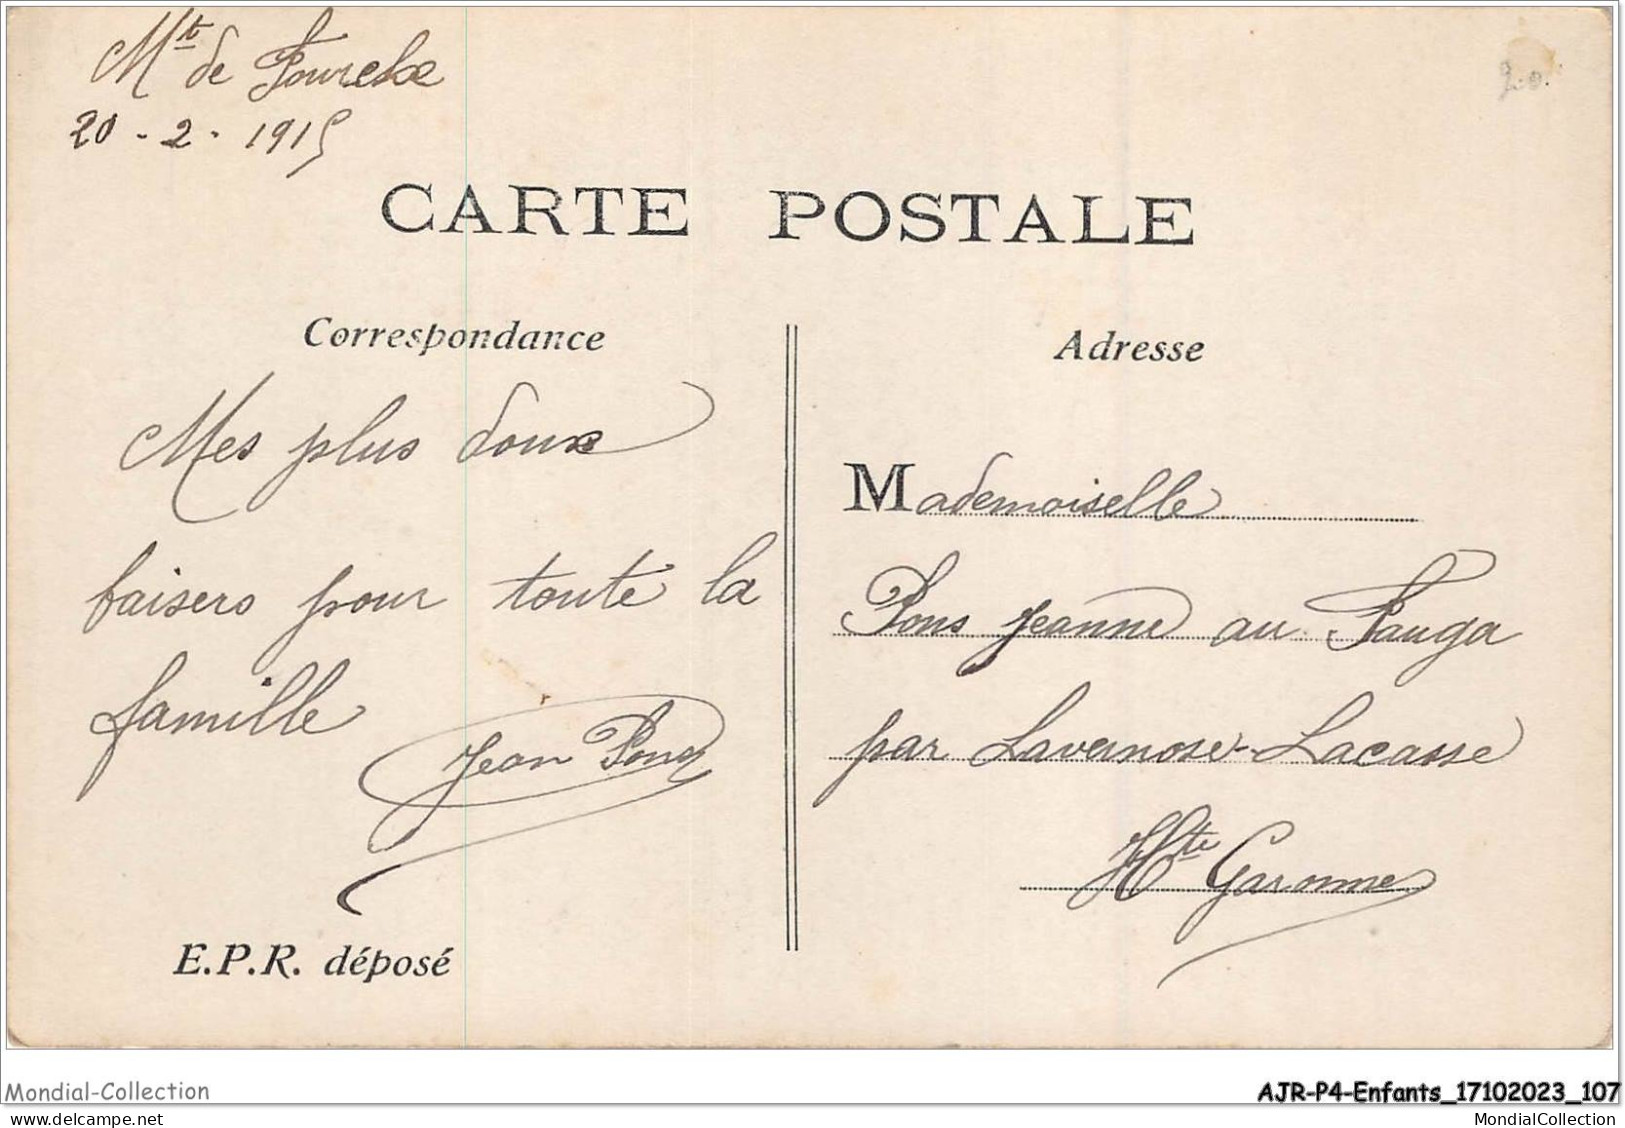 Mt de
20 - 2 - 1915
CARTE POSTALE
Correspondance
Mes plus doux
baisers pour toute la
famille
Jean Pons
E.P.R. déposé
Adresse
Mademoiselle
Pons Jeanne au Fauga
par Lavernose-Lacasse
Hte Garonne
Mondial-Collection
AJR-P4-Enfants_17102023_107
MondialCollection